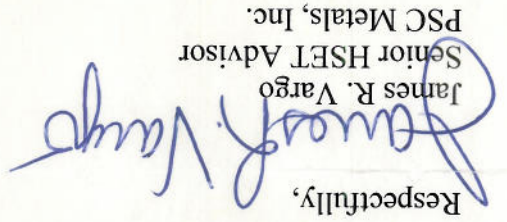 Respectfully,
James R. Vargo
James R. Vargo
Senior HSET Advisor
PSC Metals, Inc.